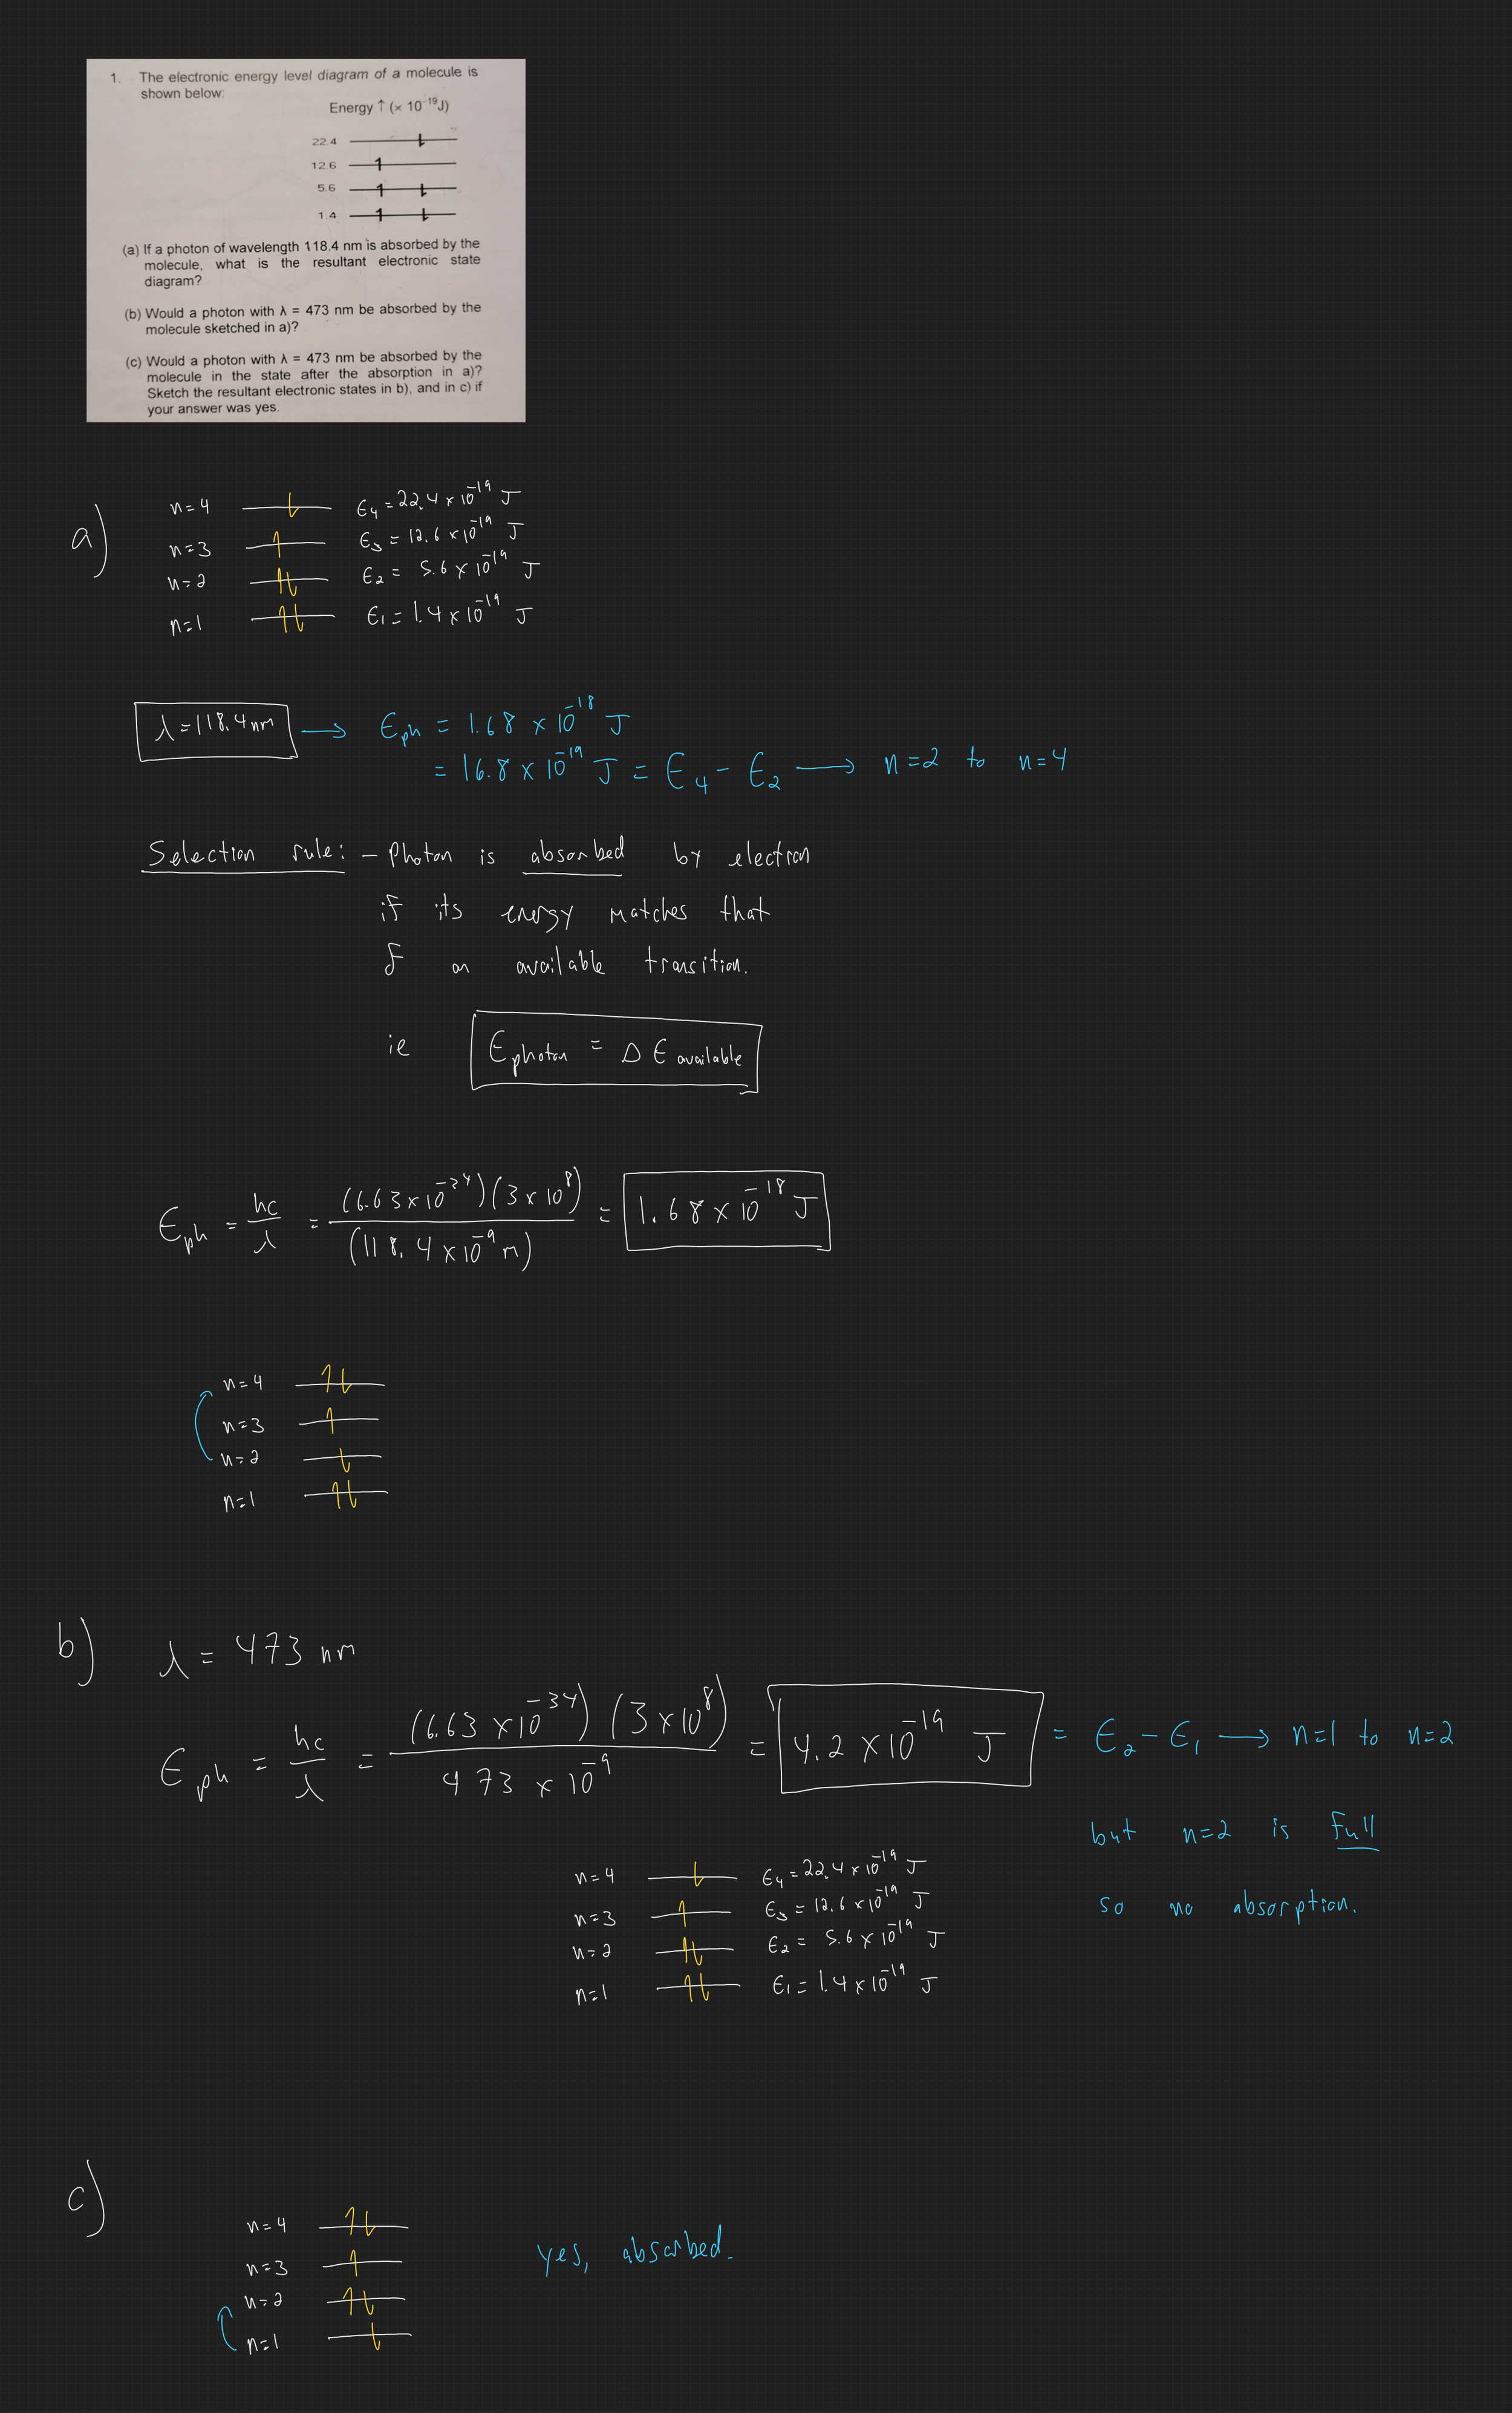 1. The electronic energy level diagram of a molecule is
shown below:
Energy ↑ (× 10⁻¹⁹J)
22.4
12.6
5.6
1.4
(a) If a photon of wavelength 118.4 nm is absorbed by the
molecule, what is the resultant electronic state
diagram?
(b) Would a photon with λ = 473 nm be absorbed by the
molecule sketched in a)?
(c) Would a photon with λ = 473 nm be absorbed by the
molecule in the state after the absorption in a)?
Sketch the resultant electronic states in b), and in c) if
your answer was yes.
a)
n=4 E₄ = 22.4 × 10⁻¹⁹ J
n=3 E₃ = 12.6 × 10⁻¹⁹ J
n=2 E₂ = 5.6 × 10⁻¹⁹ J
n=1 E₁ = 1.4 × 10⁻¹⁹ J
λ = 118.4 nm → Eph = 1.68 × 10⁻¹⁸ J
= 16.8 × 10⁻¹⁹ J = E₄ - E₂ → n=2 to n=4
Selection rule: - Photon is absorbed by electron
if its energy matches that
of an available transition.
ie Ephoton = ΔE available
Eph = hc/λ = (6.63×10⁻³⁴)(3×10⁸)/(118.4×10⁻⁹m) = 1.68 × 10⁻¹⁸ J
n=4
n=3
n=2
n=1
b) λ = 473 nm
Eph = hc/λ = (6.63×10⁻³⁴)(3×10⁸)/473×10⁻⁹ = 4.2 × 10⁻¹⁹ J = E₂ - E₁ → n=1 to n=2
but n=2 is full
so no absorption.
n=4 E₄ = 22.4 × 10⁻¹⁹ J
n=3 E₃ = 12.6 × 10⁻¹⁹ J
n=2 E₂ = 5.6 × 10⁻¹⁹ J
n=1 E₁ = 1.4 × 10⁻¹⁹ J
c)
n=4
n=3 yes, absorbed.
n=2
n=1